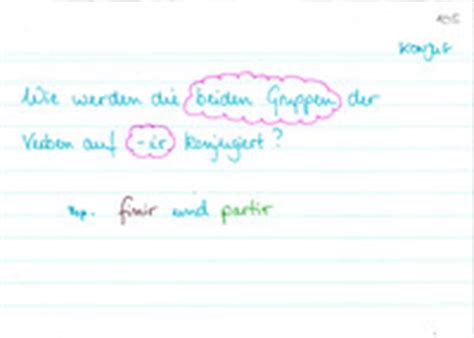 105
Konjug
Wie werden die beiden Gruppen der
Verben auf -ir konjugiert?
Bsp. finir und partir